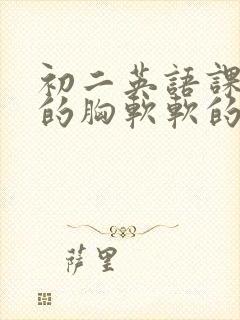 初二英語課
的胸軟軟的
萨里